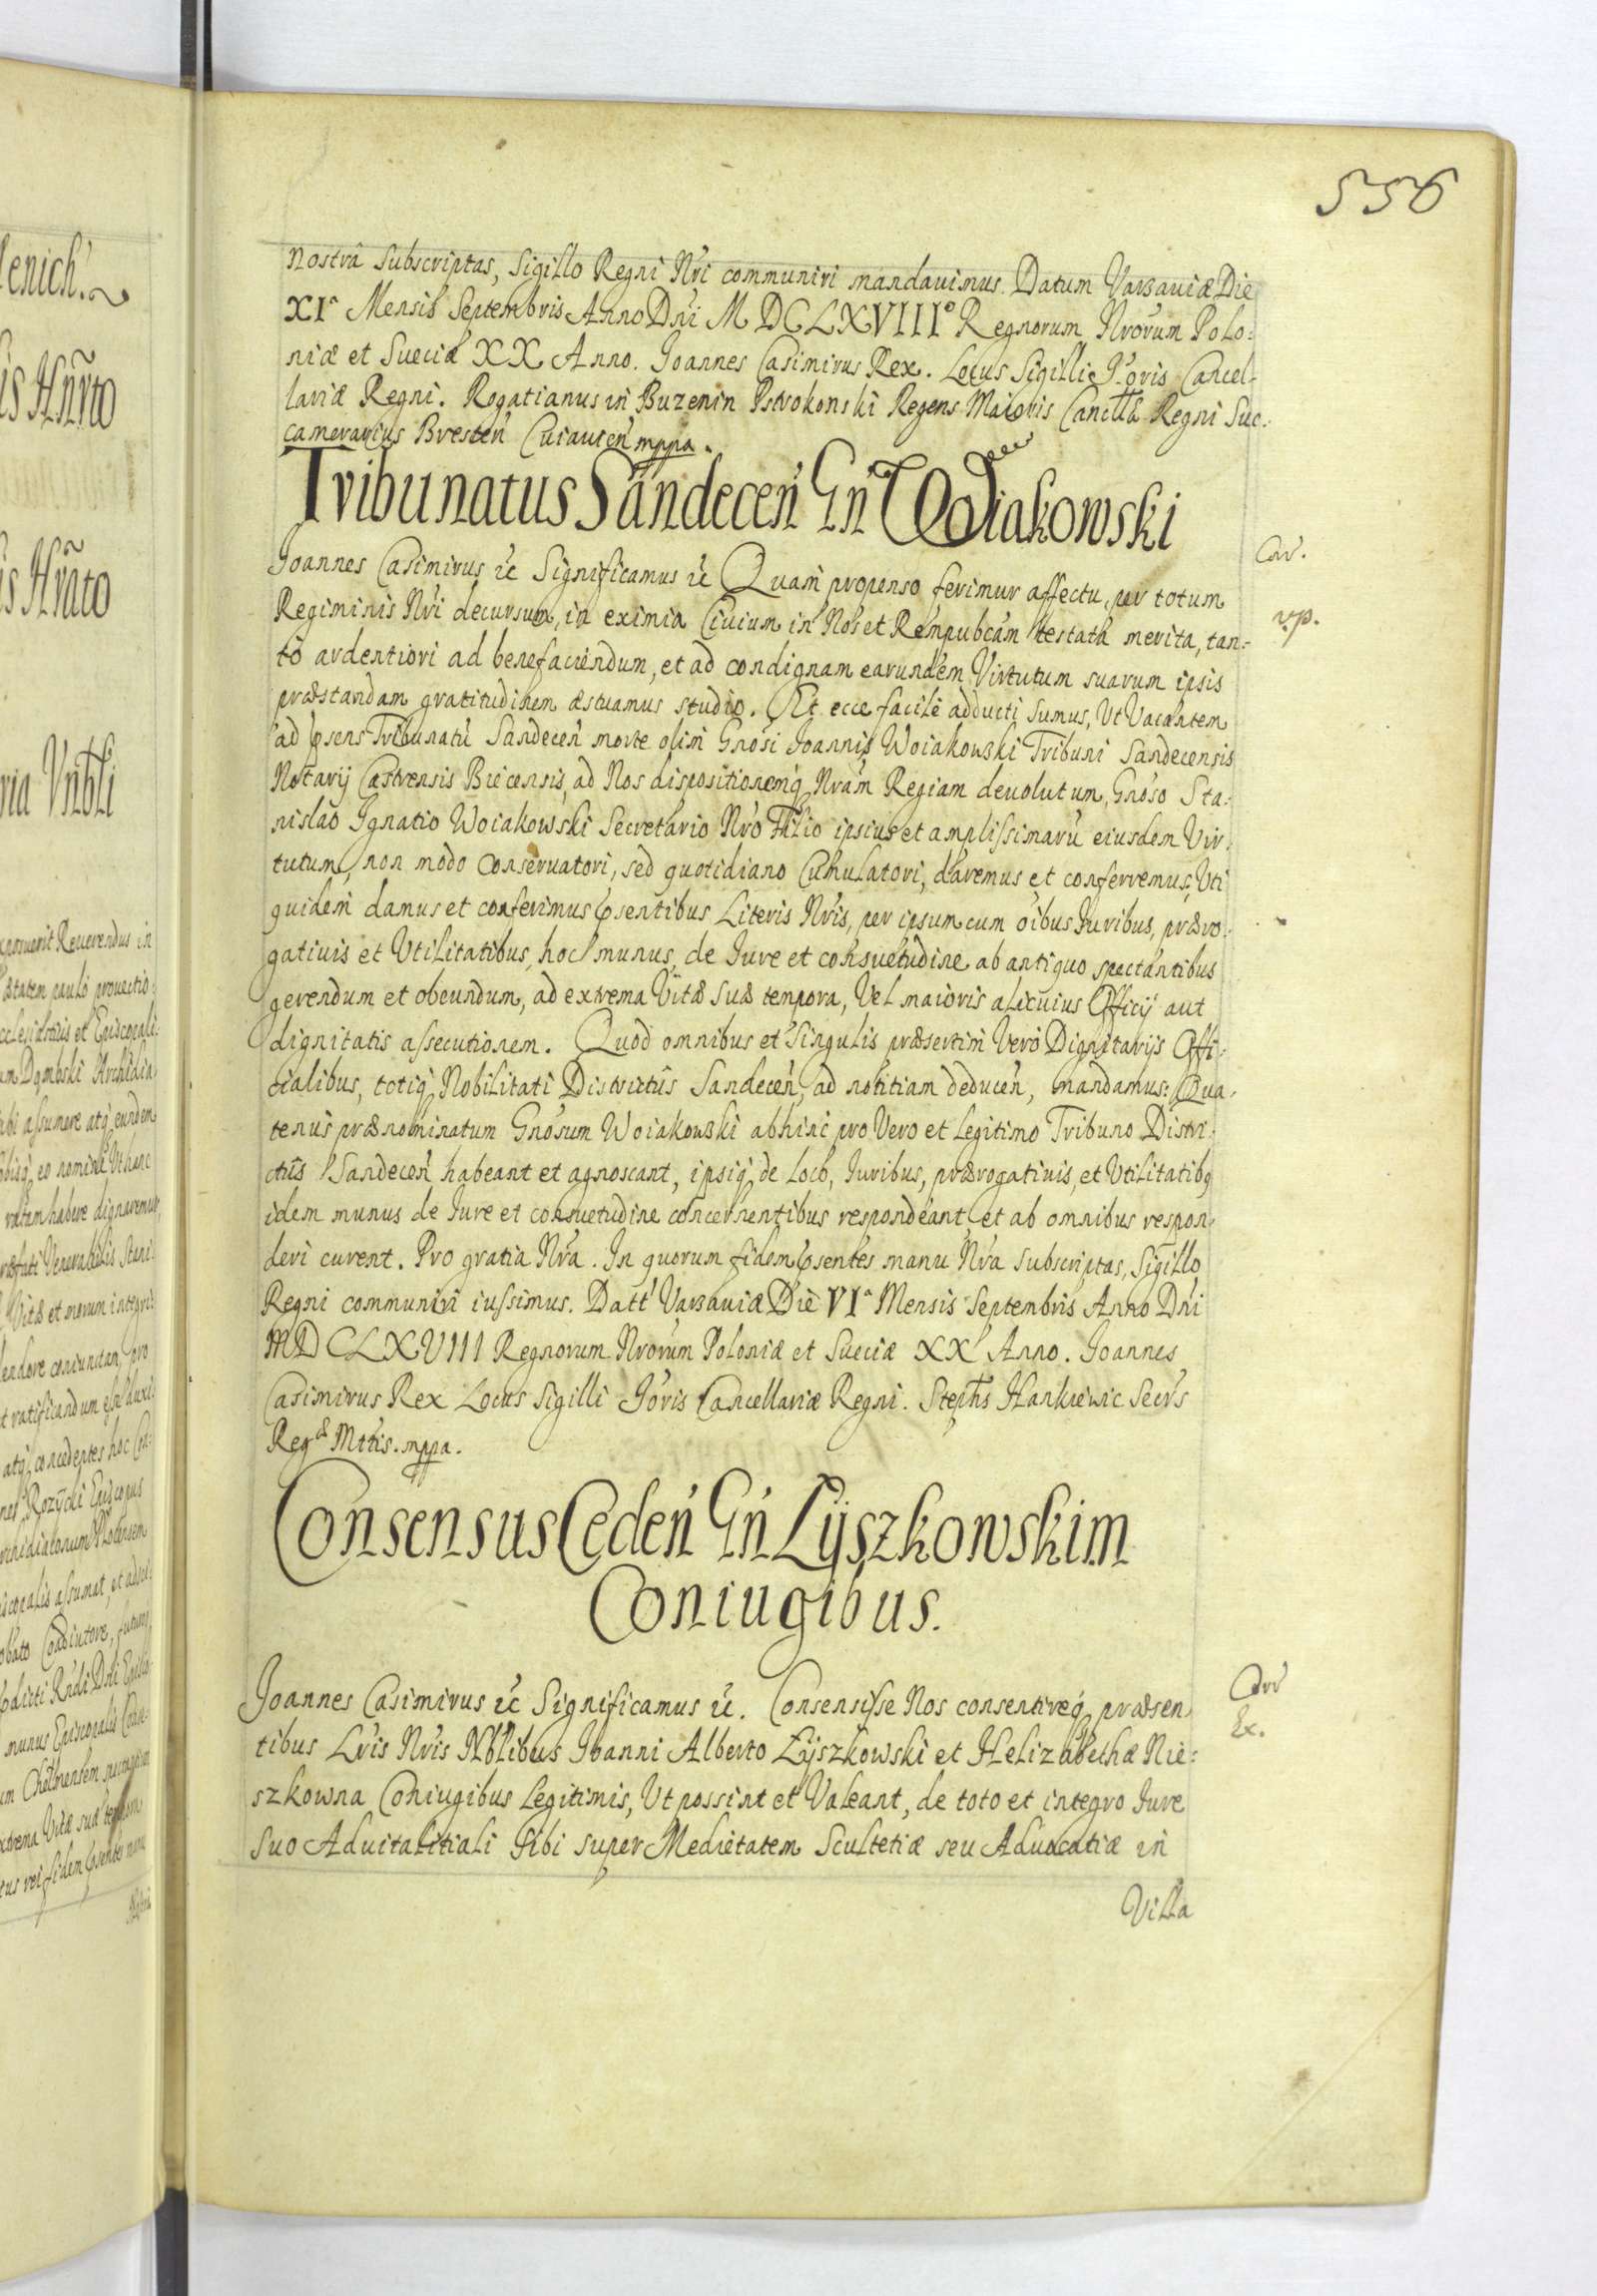 556
nostrâ Subscriptas, Sigillo Regni Nri communiri mandauimus. Datum Varsaviæ Die
XIª Mensis Septembris Anno Dni M DC LXVIIIº Regnorum Nrorum Polo:
niæ et Sueciæ XX Anno. Joannes Casimirus Rex. Locus Sigilli Joris Cancel-
lariæ Regni. Rogatianus in Buzenin Pstrokonski Regens Maioris Cancllæ Regni Suc-
camerarius Bresten Cuiauien mppa.
Tribunatus Sandecen Gn Woiakowski
Joannes Casimirus &c Significamus &c Quam propenso ferimur affectu, per totum
Cor.
Regiminis Nri decursum, in eximia Ciuium in Nos et Rempubcam testata merita, tan-
vp.
to ardentiori ad benefaciendum, et ad condignam earundem Virtutum suarum ipsis
præstandam gratitudinem æstuamus studio. Et ecce facile adducti sumus, Ut Vacantem
ad psens Tribunatu Sandecen morte olim Gnosi Joannis Woiakowski Tribuni Sandecensis
Notarij Castrensis Biecensis, ad Nos dispositionemq Nram Regiam deuolutum, Gnoso Sta-
nislao Ignatio Woiakowski Secretario Nro Filio ipsius et amplissimaru eiusdem Vir-
tutum, non modo Conseruatori, sed quotidiano Cumulatori, daremus et conferremus, Uti
quidem damus et conferimus psentibus Literis Nris, per ipsum cum oibus Iuribus, præro-
gatiuis et Utilitatibus, hoc munus, de Iure et consuetudine ab antiquo spectantibus
gerendum et obeundum, ad extrema Vitæ suæ tempora, Vel maioris alicuius Officij aut
dignitatis assecutionem. Quod omnibus et singulis præsertim Vero Dignitarijs Offi-
cialibus, totiq Nobilitati Districtus Sandecen, ad notitiam deducen, mandamus: Qua-
tenus prænominatum Gnosum Woiakowski abhinc pro Vero et Legitimo Tribuno Distri-
ctûs Sandecen habeant et agnoscant, ipsiq de Loco, Iuribus, prærogatiuis, et Utilitatibq
idem munus de Iure et consuetudine concernentibus respondeant, et ab omnibus respon-
deri curent. Pro gratia Nra. In quorum fidem psentes manu Nra subscriptas, Sigillo
Regni communiri iussimus. Datt Varsaviæ Die VIª Mensis Septembris Anno Dni
MDCLXVIII Regnorum Nrorum Poloniæ et Sueciæ XX Anno. Joannes
Casimirus Rex Locus Sigilli Joris Cancellariæ Regni. Stephs Hankiewic Secrs
Regæ Mttis. mppa.
Consensus Ceden Gn Lÿszkowskim
Coniugibus.
Joannes Casimirus &c Significamus &c. Consensisse Nos consentireq præsen-
tibus Lris Nris Nblibus Joanni Alberto Lÿszkowski et Helizabethæ Nie-
Ex.
szkowna Coniugibus Legitimis, Ut possint et Valeant, de toto et integro Iure
Suo Aduitalitiali Sibi super Medietatem Scultetiæ seu Aduocatiæ in
Villa